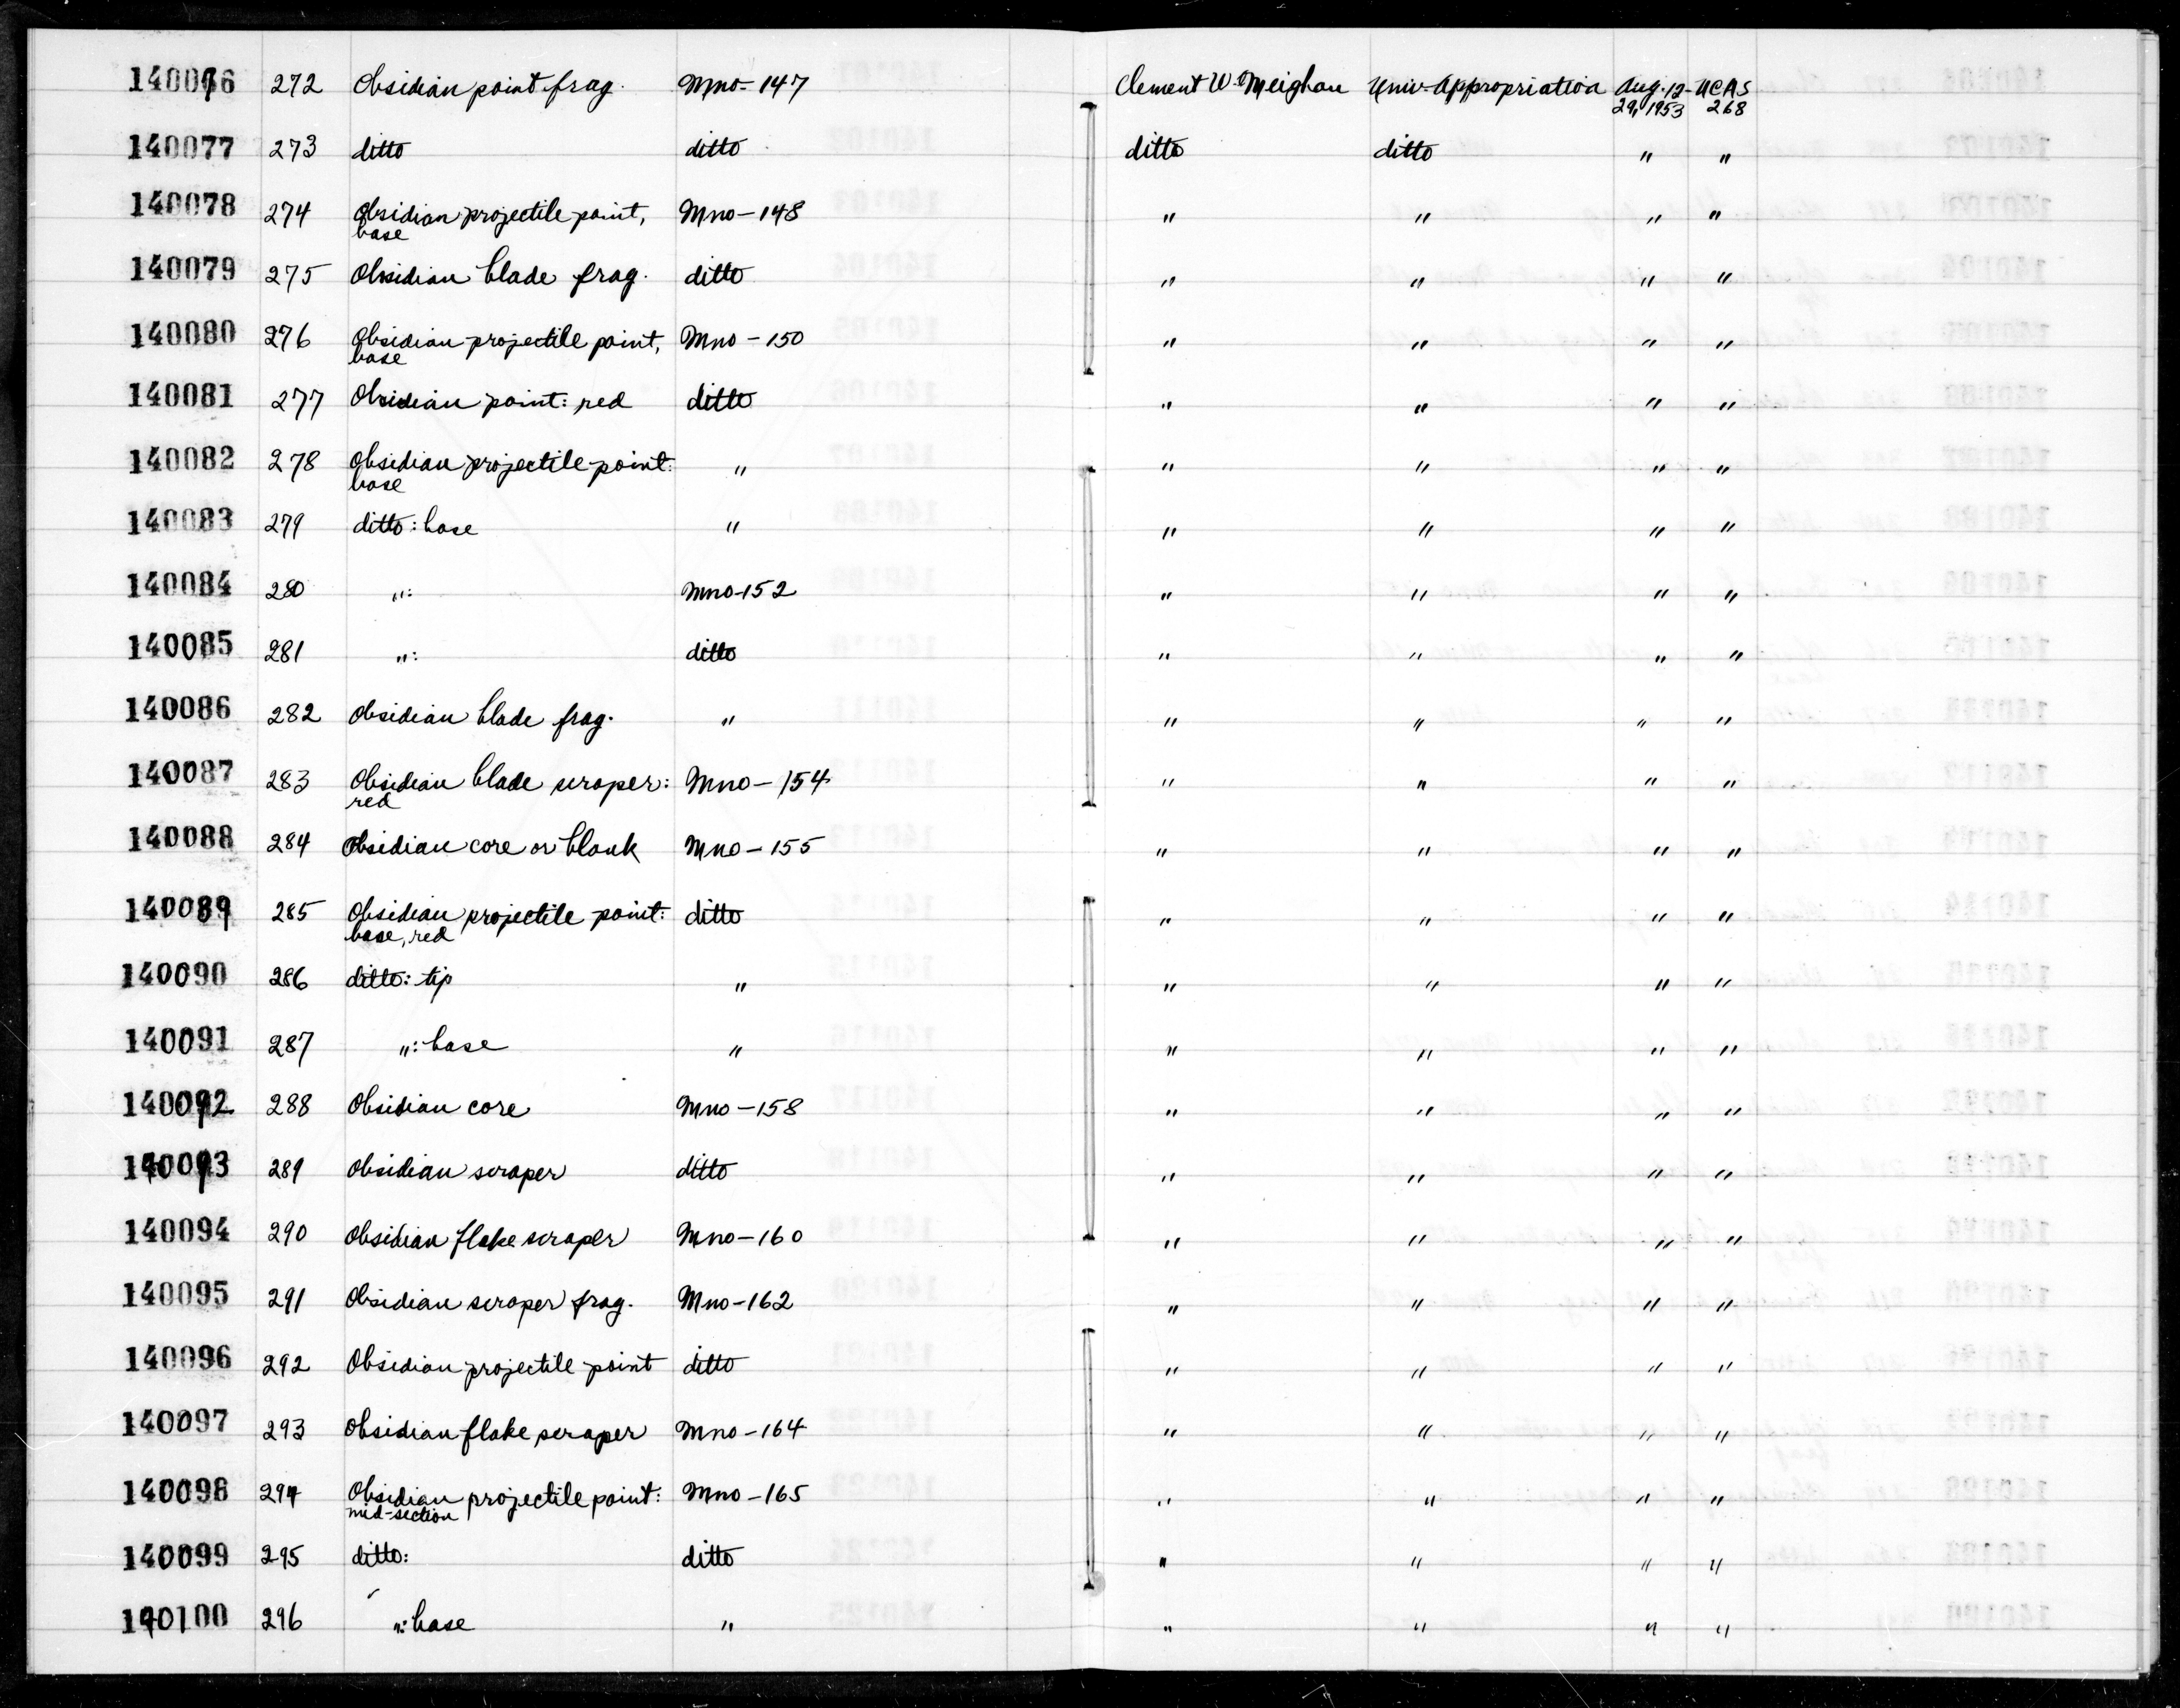 140076 272 Obsidian point frag. Mno-147 Clement W. Meighan Univ. Appropriation Aug. 12- UCAS
29, 1953 268
140077 273 ditto ditto ditto ditto " "
140078 274 Obsidian projectile point, Mno-148 " " " "
base
140079 275 Obsidian blade frag. ditto " " " "
140080 276 Obsidian projectile point, Mno-150 " " " "
base
140081 277 Obsidian point: red ditto " " " "
140082 278 Obsidian projectile point: " " " " "
base
140083 279 ditto: base " " " " "
140084 280 ": Mno-152 " " " "
140085 281 ": ditto " " " "
140086 282 Obsidian blade frag. " " " " "
140087 283 Obsidian blade scraper: Mno-154 " " " "
red
140088 284 Obsidian core or blank Mno-155 " " " "
140089 285 Obsidian projectile point: ditto " " " "
base, red
140090 286 ditto: tip " " " " "
140091 287 ": base " " " " "
140092 288 Obsidian core Mno-158 " " " "
140093 289 Obsidian scraper ditto " " " "
140094 290 Obsidian flake scraper Mno-160 " " " "
140095 291 Obsidian scraper frag. Mno-162 " " " "
140096 292 Obsidian projectile point ditto " " " "
140097 293 Obsidian flake scraper Mno-164 " " " "
140098 294 Obsidian projectile point: Mno-165 " " " "
mid-section
140099 295 ditto: ditto " " " "
140100 296 ": base " " " " "